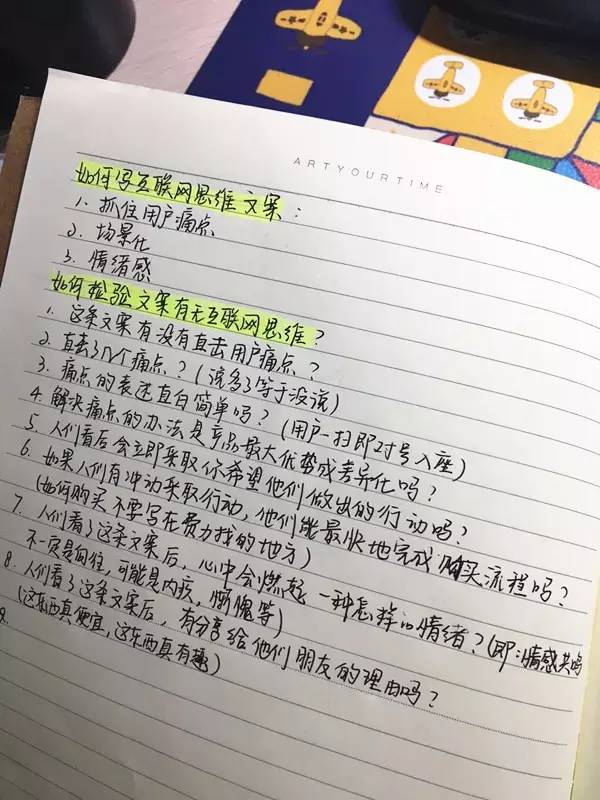 ARTYOURTIME
如何写互联网思维文案:
1. 抓住用户痛点
2. 场景化
3. 情绪感
如何检验文案有无互联网思维?
1. 这条文案有没有直击用户痛点?
2. 直击了几个痛点?(说多了等于没说)
3. 痛点的表述直白简单吗?(用户一扫即对号入座)
4. 解决痛点的办法是产品最大优势或差异化吗?
5. 人们看后会立即采取你希望他们做出的行动吗?
6. 如果人们有冲动采取行动,他们能最快地完成购买流程吗?
(如何购买不要写在费力找的地方)
7. 人们看了这条文案后,心中会燃起一种怎样的情绪?(即:情感共鸣
不一定是向往,可能是内疚,惭愧等)
8. 人们看了这条文案后,有分享给他们朋友的理由吗?
(这东西真便宜,这东西真有趣)
9.